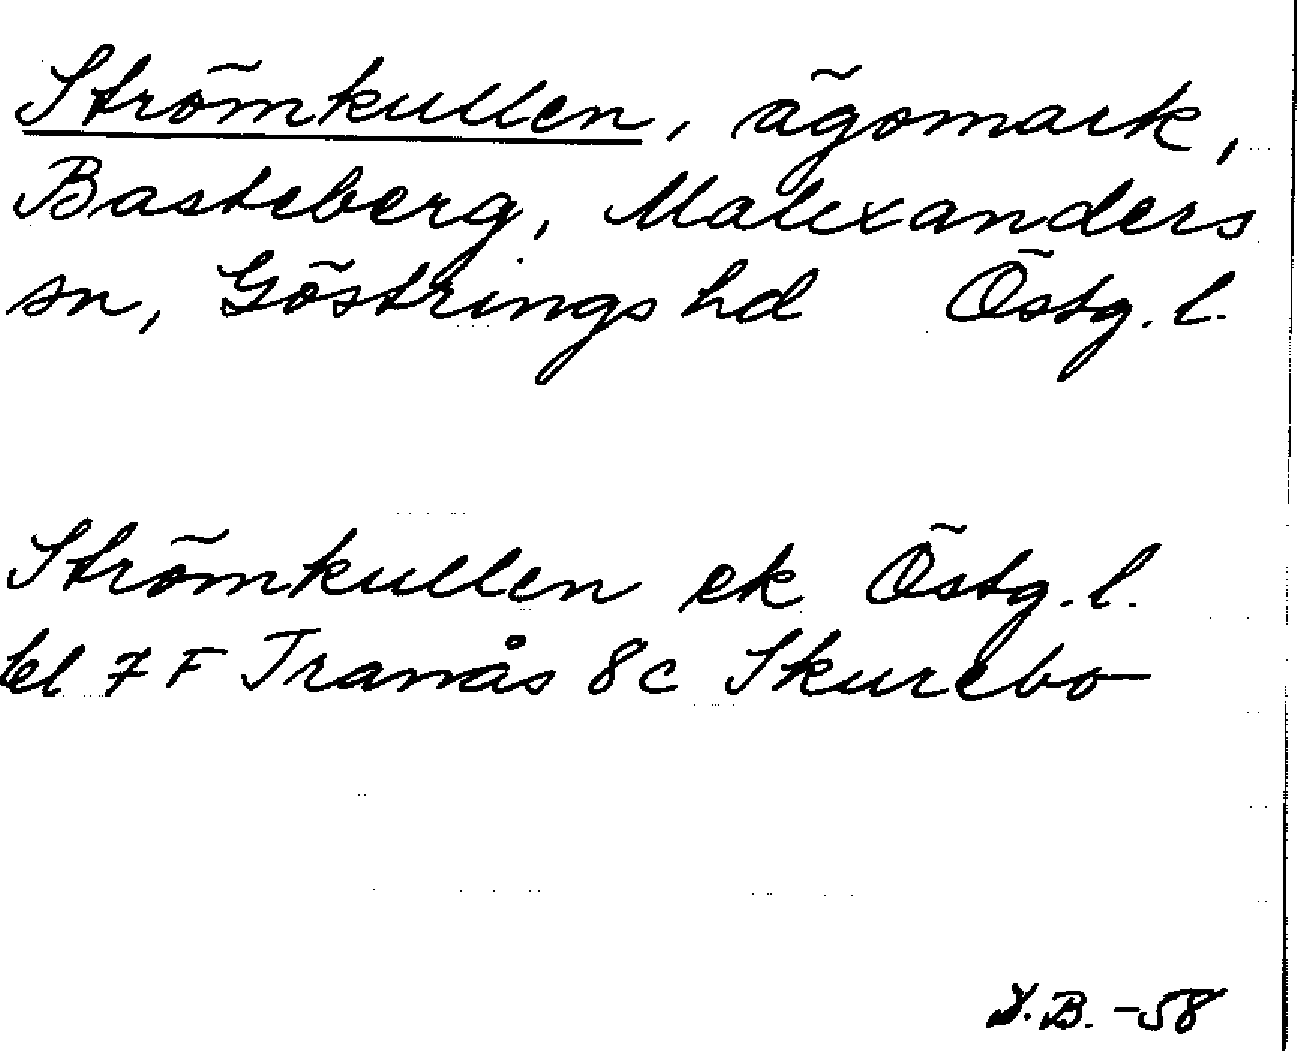 Strömkullen, ägomark,
Basteberg, Malexanders
sn, Göstrings hd Östg. l.
Strömkullen ek Östg. l.
bl 7 F Tranås 8 c Skurebo
B. -58